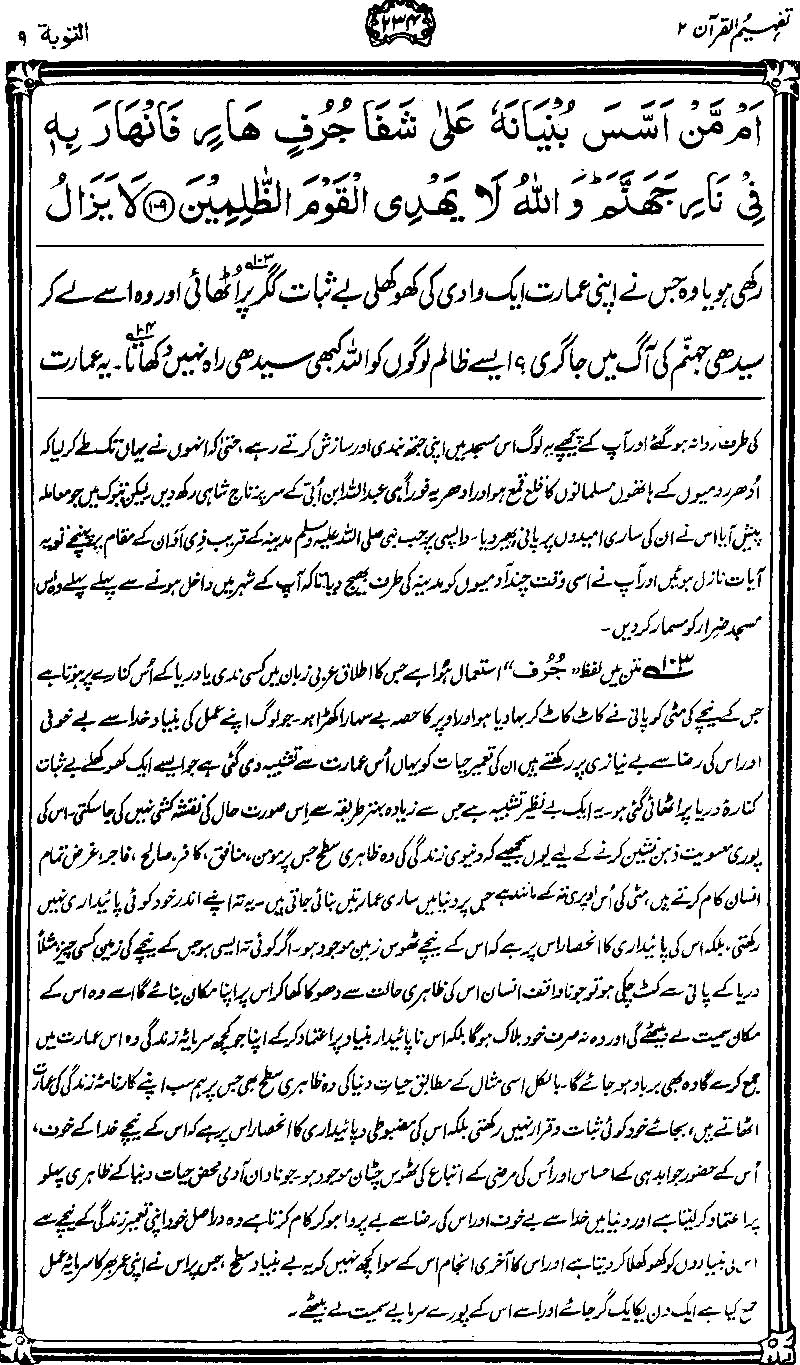 تفہیم القرآن ۲
۲۳۴
التوبۃ ۹
اَمْ مَّنْ اَسَّسَ بُنْيَانَهٗ عَلٰى شَفَا جُرُفٍ هَارٍ فَانْهَارَ بِهٖ
فِيْ نَارِ جَهَنَّمَ ؕ وَ اللّٰهُ لَا يَهْدِى الْقَوْمَ الظّٰلِمِيْنَ ﴿۱۰۹﴾ لَا يَزَالُ
رکھی ہو یا وہ جس نے اپنی عمارت ایک وادی کی کھوکھلی بے ثبات گگر پر۱۰۳ اُٹھائی اور وہ اسے لے کر
سیدھی جہنّم کی آگ میں جا گری؟ ایسے ظالم لوگوں کو اللہ کبھی سیدھی راہ نہیں دکھاتا۱۰۴۔ یہ عمارت
کی طرف روانہ ہو گئے اور آپ کے پیچھے یہ لوگ اس مسجد میں اپنی جتھ بندی اور سازش کرتے رہے، حتیٰ کہ انہوں نے یہاں تک طے کر لیا کہ
اُدھر رومیوں کے ہاتھوں مسلمانوں کا قلع قمع ہو اور ادھر یہ فوراً ہی عبداللہ ابن اُبَیّ کے سر پر تاج شاہی رکھ دیں لیکن تبوک میں جو معاملہ
پیش آیا اس نے ان کی ساری امیدوں پر پانی پھیر دیا۔ واپسی پر جب نبی صلی اللہ علیہ وسلم مدینہ کے قریب ذِی اَوَان کے مقام پر پہنچے تو یہ
آیات نازل ہوئیں اور آپ نے اسی وقت چند آدمیوں کو مدینہ کی طرف بھیج دیا تاکہ آپ کے شہر میں داخل ہونے سے پہلے پہلے وہ اس
مسجد ضرار کو مسمار کر دیں۔
۱۰۳ متن میں لفظ ”جُرُف“ استعمال ہوا ہے جس کا اطلاق عربی زبان میں کسی ندی یا دریا کے اُس کنارے پر ہوتا ہے
جس کے نیچے کی مٹی کو پانی نے کاٹ کاٹ کر بہا دیا ہو اور اوپر کا حصہ بے سہارا کھڑا ہو۔ جو لوگ اپنے عمل کی بنیاد خدا سے بے خوفی
اور اس کی رضا سے بے نیازی پر رکھتے ہیں ان کی تعمیر حیات کو یہاں اُس عمارت سے تشبیہ دی گئی ہے جو ایسے ایک کھوکھلے بے ثبات
کنارۂ دریا پر اٹھائی گئی ہو۔ یہ ایک بے نظیر تشبیہ ہے جس سے زیادہ بہتر طریقہ سے اِس صورت حال کی نقشہ کشی نہیں کی جا سکتی۔ اس کی
پوری معنویت ذہن نشین کرنے کے لیے یوں سمجھیے کہ دنیوی زندگی کی وہ ظاہری سطح جس پر مومن، منافق، کافر، صالح، فاجر، غرض تمام
انسان کام کرتے ہیں، مٹی کی اُس اوپری تہ کے مانند ہے جس پر دنیا میں ساری عمارتیں بنائی جاتی ہیں۔ یہ تہ اپنے اندر خود کوئی پائیداری نہیں
رکھتی، بلکہ اس کی پائیداری کا انحصار اس پر ہے کہ اس کے نیچے ٹھوس زمین موجود ہو۔ اگر کوئی تہ ایسی ہو جس کے نیچے کی زمین کسی چیز، مثلاً
دریا کے پانی سے کٹ چکی ہو تو جو ناواقف انسان اس کی ظاہری حالت سے دھوکا کھا کر اس پر اپنا مکان بنائے گا اسے وہ اس کے
مکان سمیت لے بیٹھے گی اور وہ نہ صرف خود ہلاک ہوگا بلکہ اس ناپائیدار بنیاد پر اعتماد کر کے اپنا جو کچھ سرمایۂ زندگی وہ اس عمارت میں
جمع کرے گا وہ بھی برباد ہو جائے گا۔ بالکل اسی مثال کے مطابق حیاتِ دنیا کی وہ ظاہری سطح بھی جس پر ہم سب اپنے کارنامۂ زندگی کی عمارت
اٹھاتے ہیں، بجائے خود کوئی ثبات و قرار نہیں رکھتی بلکہ اس کی مضبوطی و پائیداری کا انحصار اس پر ہے کہ اس کے نیچے خدا کے خوف،
اُس کے حضور جوابدہی کے احساس اور اُس کی مرضی کے اتباع کی ٹھوس چٹان موجود ہو۔ جو نادان آدمی محض حیات دنیا کے ظاہری پہلو
پر اعتماد کر لیتا ہے اور دنیا میں خدا سے بے خوف اور اس کی رضا سے بے پروا ہو کر کام کرتا ہے وہ دراصل خود اپنی تعمیر زندگی کے نیچے سے
اس کی بنیادوں کو کھوکھلا کر دیتا ہے اور اس کا آخری انجام اس کے سوا کچھ نہیں کہ یہ بے بنیاد سطح، جس پر اس نے اپنی عمر بھر کا سرمایۂ عمل
جمع کیا ہے ایک دن یکایک گر جائے اور اسے اس کے پورے سرمایے سمیت لے بیٹھے۔